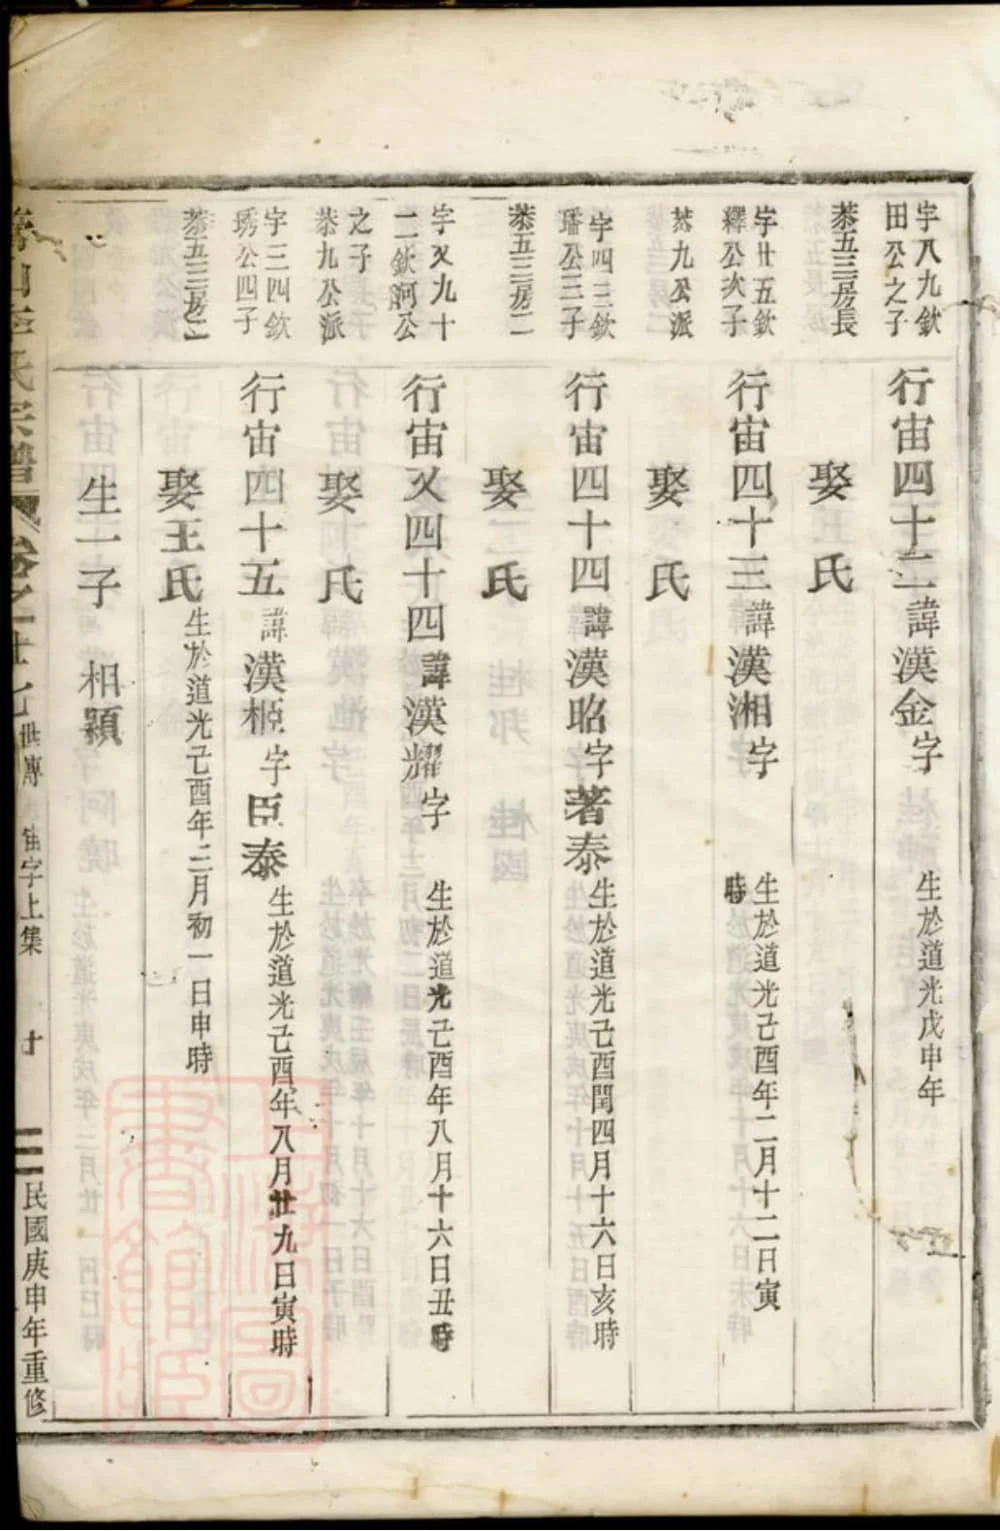 字八九欽
田公之子
行宙四十二諱漢金字
生於道光戊申年
恭五三房長
娶 氏
字廿五欽
繹公次子
行宙四十三諱漢湘字
生於道光己酉年二月十二日寅
時
恭九公派
娶 氏
字四三欽
璠公三子
行宙四十四諱漢昭字著泰
生於道光己酉閏四月十六日亥時
恭五三房二
娶 氏
字又九十
二欽訶公
之子
行宙又四十四諱漢耀字
生於道光己酉年八月十六日丑時
恭九公派
娶 氏
字三四欽
琇公四子
行宙四十五諱漢姬字臣泰
生於道光己酉年八月廿九日寅時
恭五三房二
娶王氏
生於道光己酉年二月初一日申時
生一子 相顯
氏宗譜
卷之廿七 世傳 宙字上集
民國庚申年重修
上海圖
書館藏